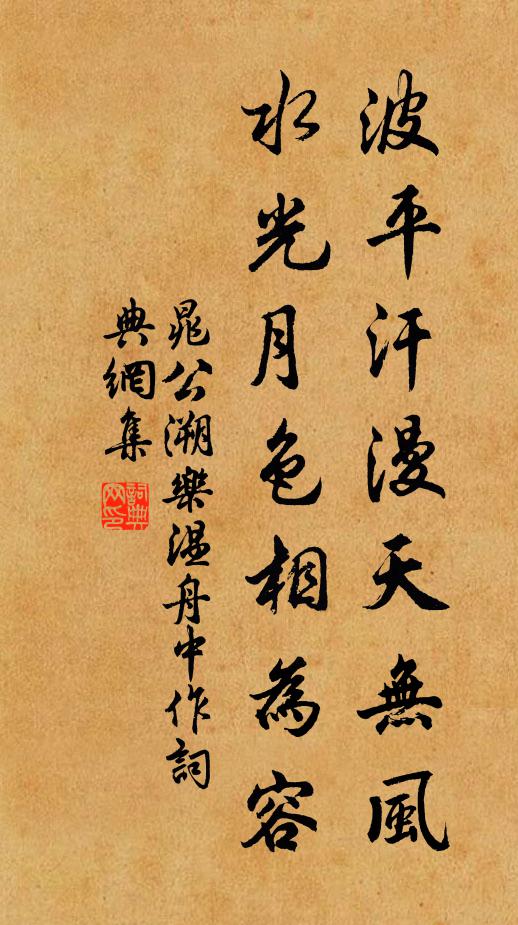 波平汗漫天無風
水光月色相為容
晁公溯樂溫舟中作詞
典網集
詞典網印